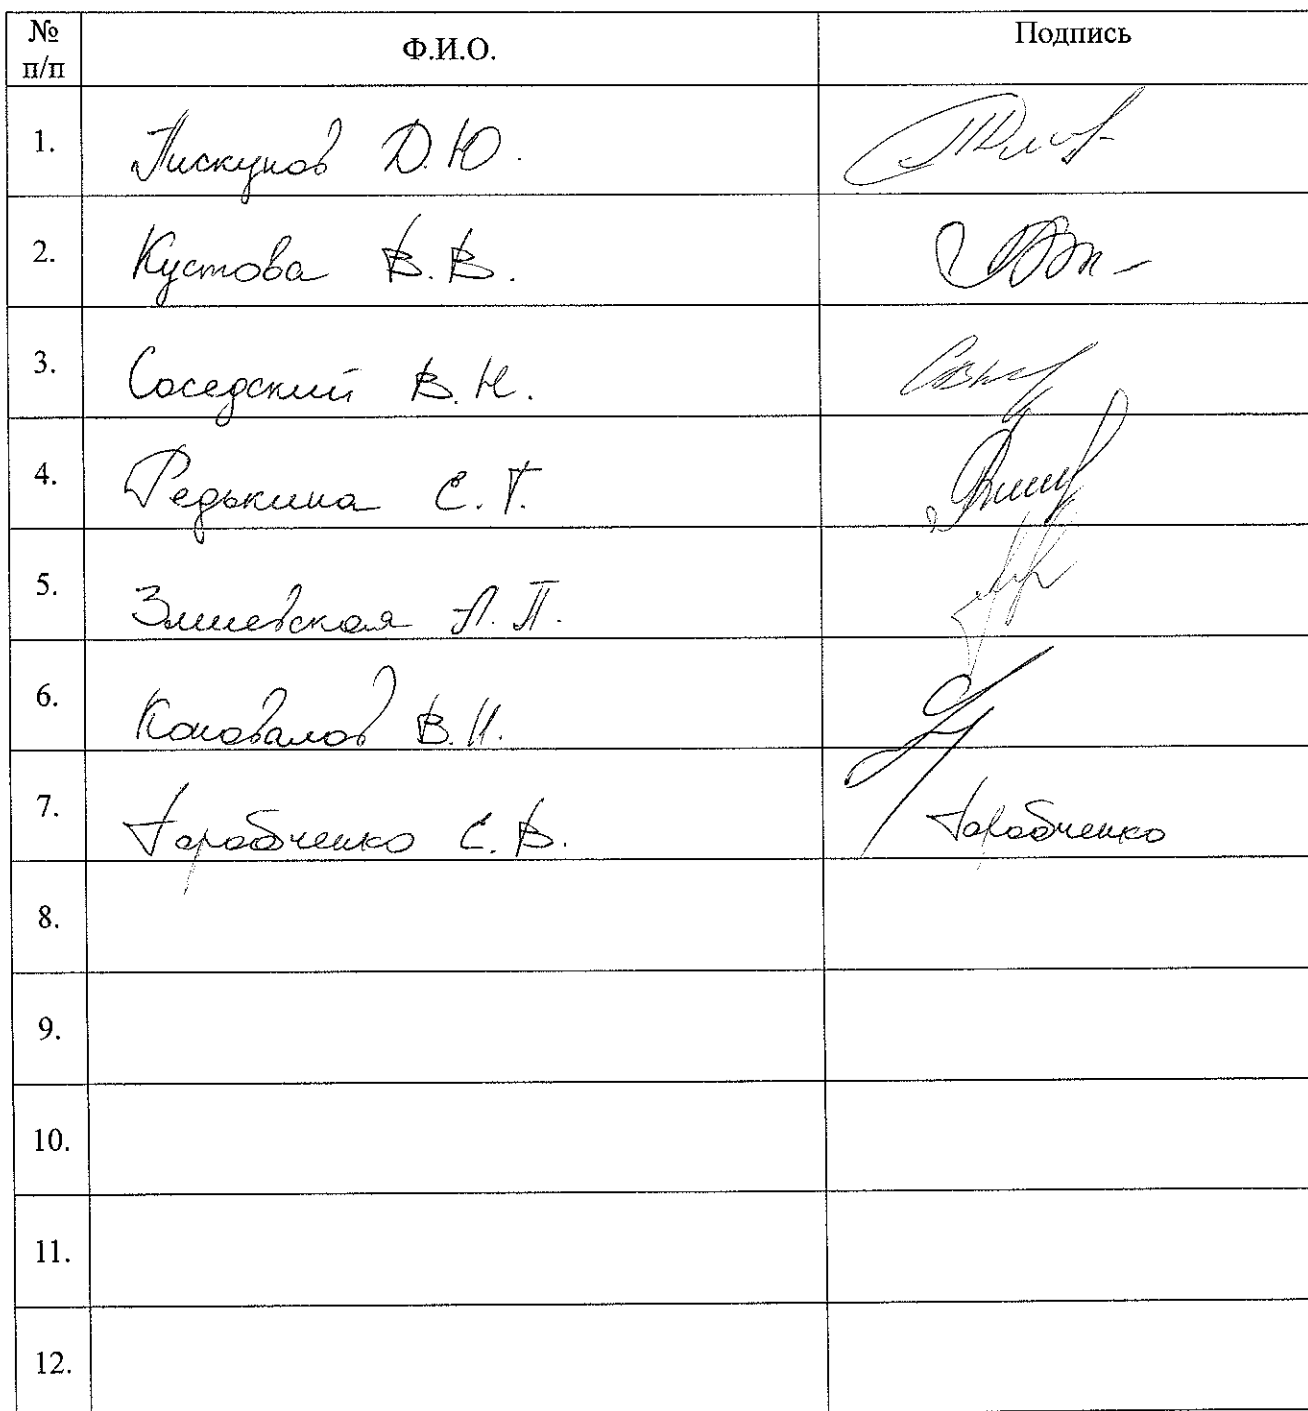 № п/п Ф.И.О. Подпись
1. Пискунов Д.Ю.
2. Кустова В.В.
3. Соседский В.Н.
4. Редькина С.Г.
5. Змиевская Л.П.
6. Коновалов В.И.
7. Тарабченко С.В. Тарабченко
8.
9.
10.
11.
12.